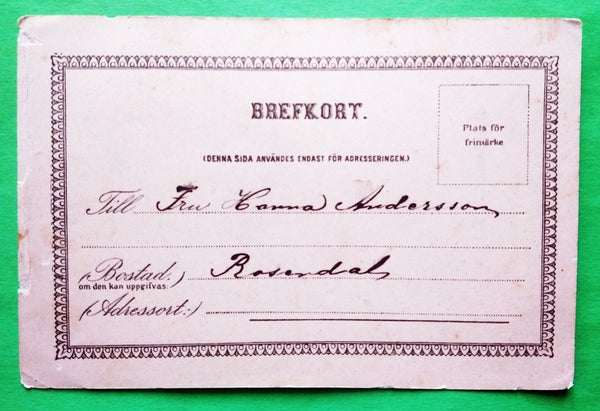 BREFKORT.
Plats för
frimärke
(DENNA SIDA ANVÄNDES ENDAST FÖR ADRESSERINGEN.)
Till Fru Hanna Andersson
(Bostad:) Rosendal
om den kan uppgifvas.
(Adressort:)